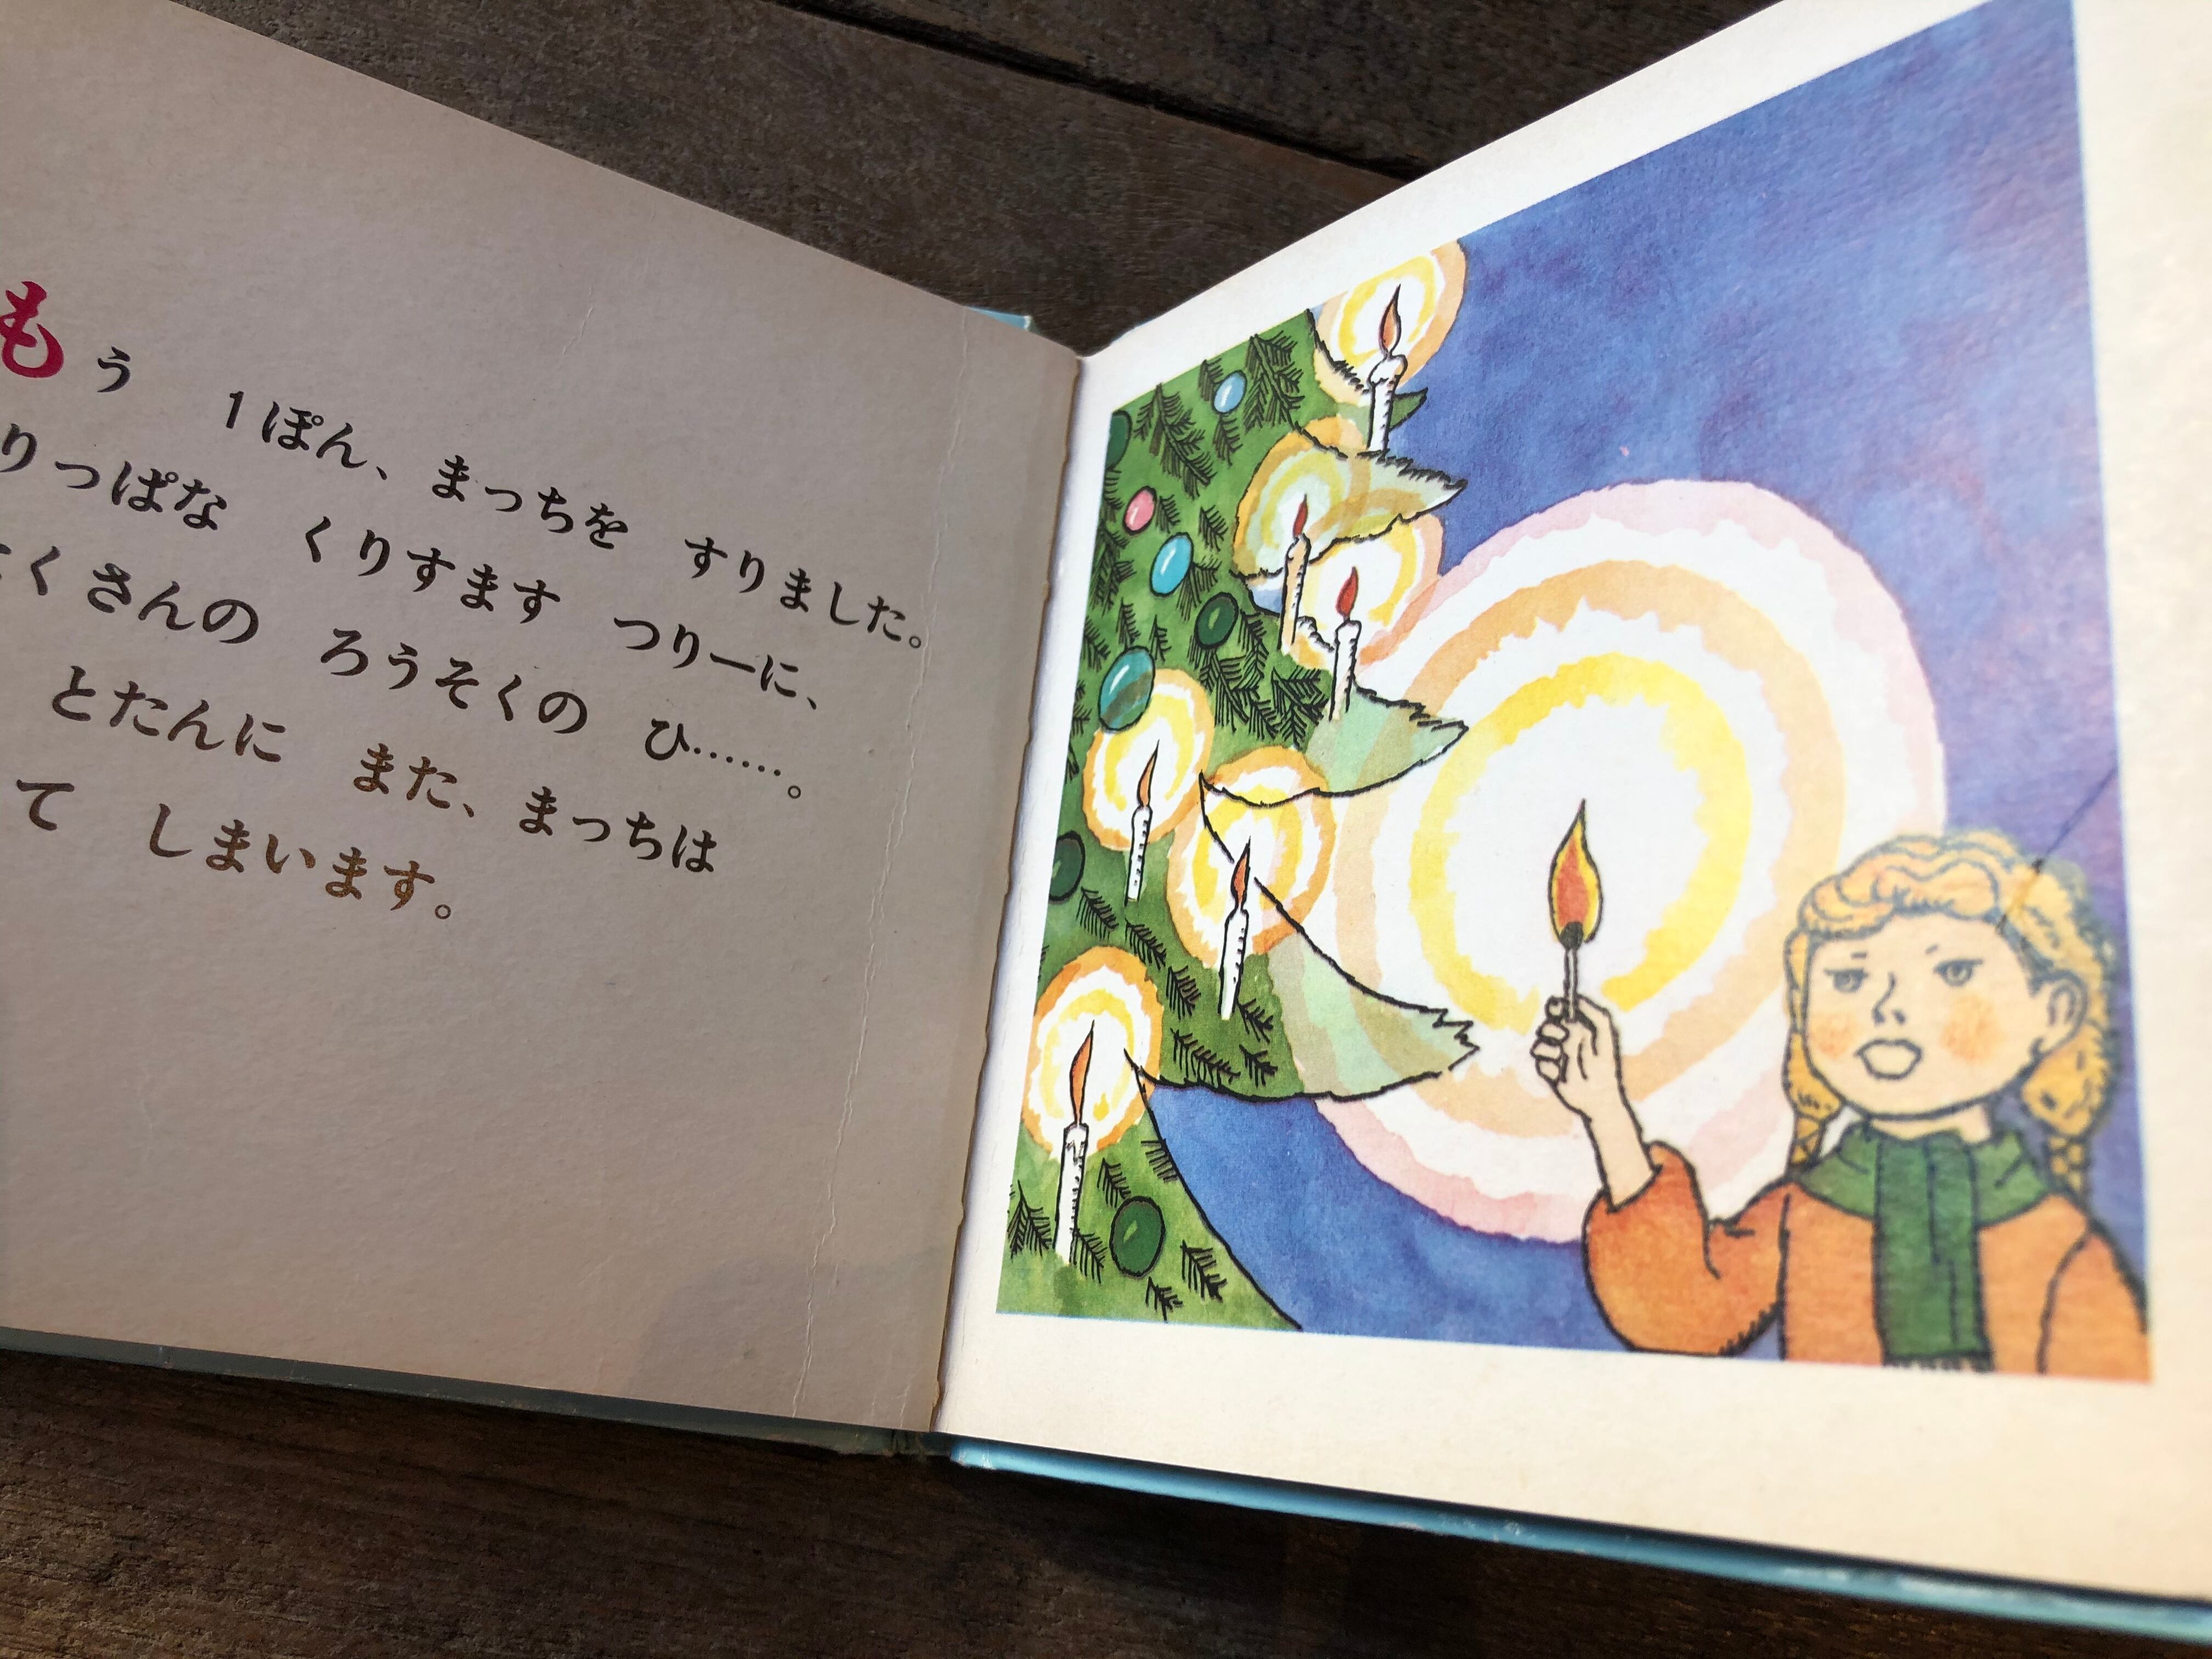 もう 1ぽん、 まっちを すりました。
りっぱな くりすます つりーに、
たくさんの ろうそくの ひ……。
とたんに また、 まっちは
て しまいます。